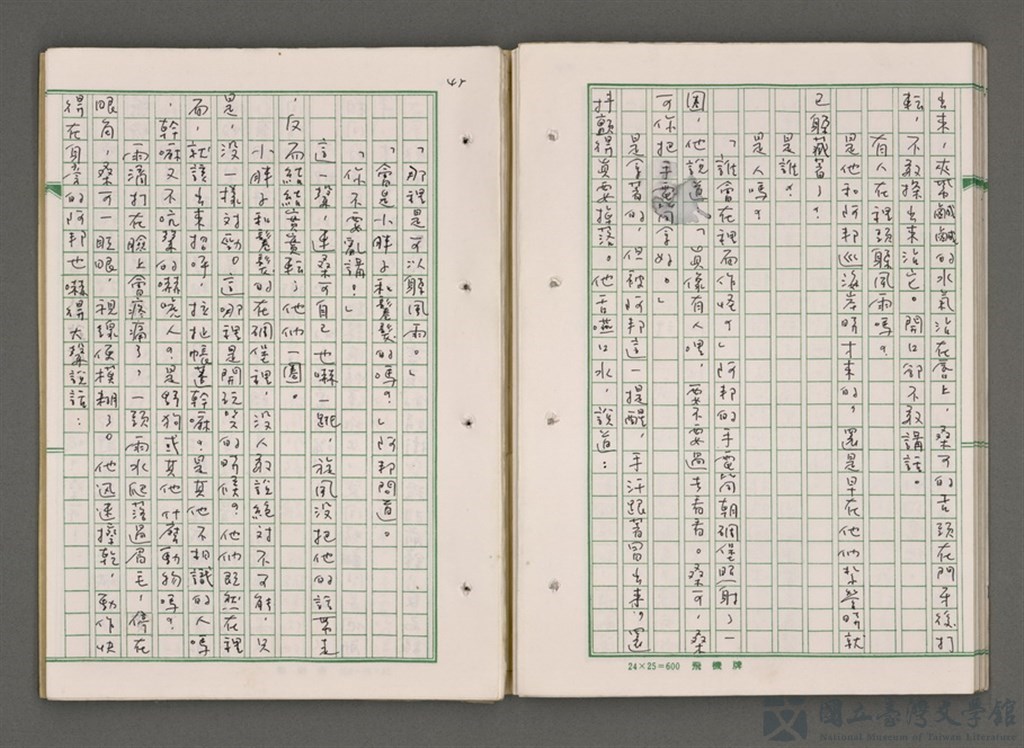 出來，夾帶鹹鹹的水氣沾在唇上，桑可的舌頭在門牙後打
転，不敢探出來沾它。開口卻不敢講話。
有人在裡頭躲風雨嗎？
是他和阿邦巡海岸時才來的，還是早在他們紮營時就
已躲藏著了？
是誰？
是人嗎？
「誰會在裡面作怪？」阿邦的手電筒朝碉堡照射了一
圈，他說道「真像有人哩，要不要過去看看。桑可，桑
可你把手電筒拿好。」
是拿著的，但被阿邦這一提醒，手汗跟著冒出來，還
抖顫得真要掉落。他舌嚥口水，說道：
41
「那裡是可以躲風雨。」
「會是小胖子和鬈髮的嗎？」阿邦問道。
「你不要亂講！」
這一聲，連桑可自己也嚇一跳，旋風沒把他的話帶走
，反而結結實實転了他們一圈。
小胖子和鬈髮的在碉堡裡，沒人敢說絕對不可能，只
是，沒一樣對勁。這哪裡是開玩笑的時候？他們既然在裡
面，就該出來招呼，拉扯帳蓬幹嘛？是其他不相識的人嗎
，幹嘛又不吭聲的嚇唬人？是野狗或其他什麼動物嗎？
雨滴打在臉上會疼痛了，一頭雨水爬落過眉毛，停在
眼角，桑可一眨眼，視線便模糊了。他迅速擰乾，動作快
得在身旁的阿邦也嚇得大聲說話：
24×25=600 飛機牌
國立臺灣文學館
National Museum of Taiwan Literature